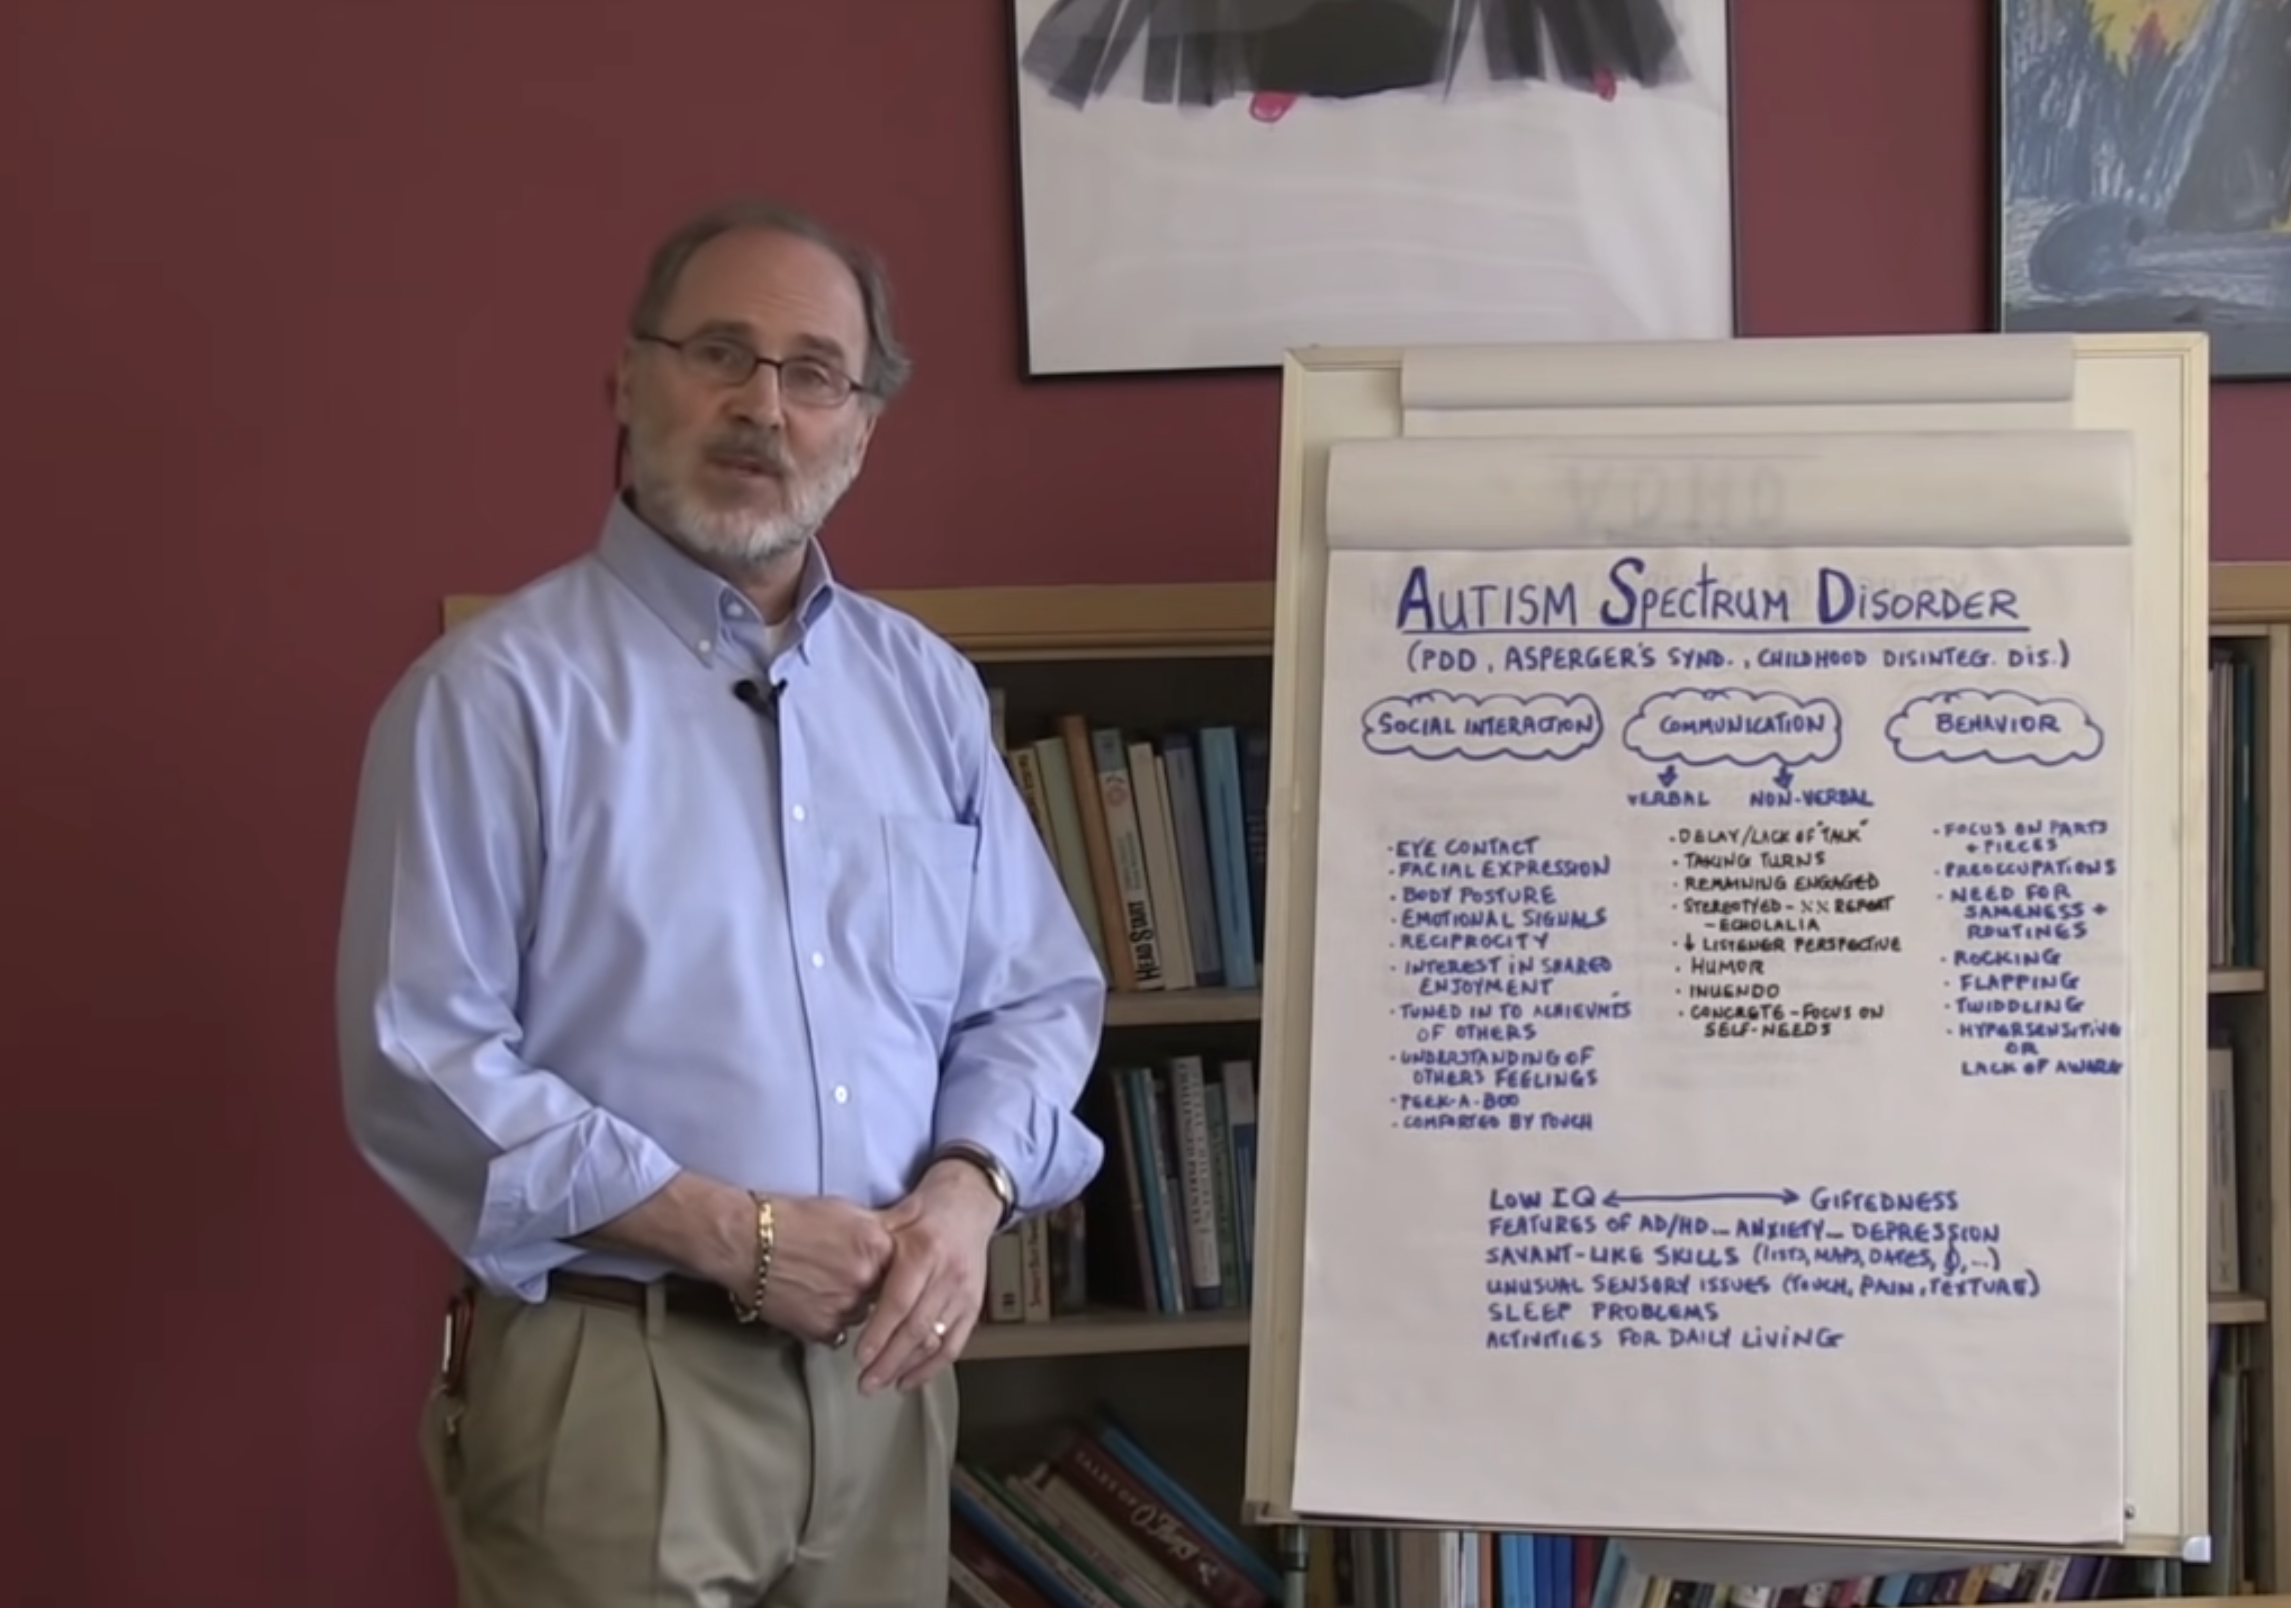 AUTISM SPECTRUM DISORDER
(PDD, ASPERGER'S SYND., CHILDHOOD DISINTEG. DIS.)
SOCIAL INTERACTION
· EYE CONTACT
· FACIAL EXPRESSION
· BODY POSTURE
· EMOTIONAL SIGNALS
· RECIPROCITY
· INTEREST IN SHARED
ENJOYMENT
· TUNED IN TO ACHIEVM'TS
OF OTHERS
· UNDERSTANDING OF
OTHERS FEELINGS
· PEEK-A-BOO
· COMFORTED BY TOUCH
COMMUNICATION
VERBAL NON-VERBAL
· DELAY/LACK OF "TALK"
· TAKING TURNS
· REMAINING ENGAGED
· STEREOTYPED - XX REPEAT
- ECHOLALIA
· ↓ LISTENER PERSPECTIVE
· HUMOR
· INUENDO
· CONCRETE - FOCUS ON
SELF-NEEDS
BEHAVIOR
· FOCUS ON PARTS
+ PIECES
· PREOCCUPATIONS
· NEED FOR
SAMENESS +
ROUTINES
· ROCKING
· FLAPPING
· TWIDDLING
· HYPERSENSITIVE
OR
LACK OF AWARE
LOW IQ ↔ GIFTEDNESS
FEATURES OF AD/HD - ANXIETY - DEPRESSION
SAVANT-LIKE SKILLS (LISTS, MAPS, DATES, ...)
UNUSUAL SENSORY ISSUES (TOUCH, PAIN, TEXTURE)
SLEEP PROBLEMS
ACTIVITIES FOR DAILY LIVING
HEAD START